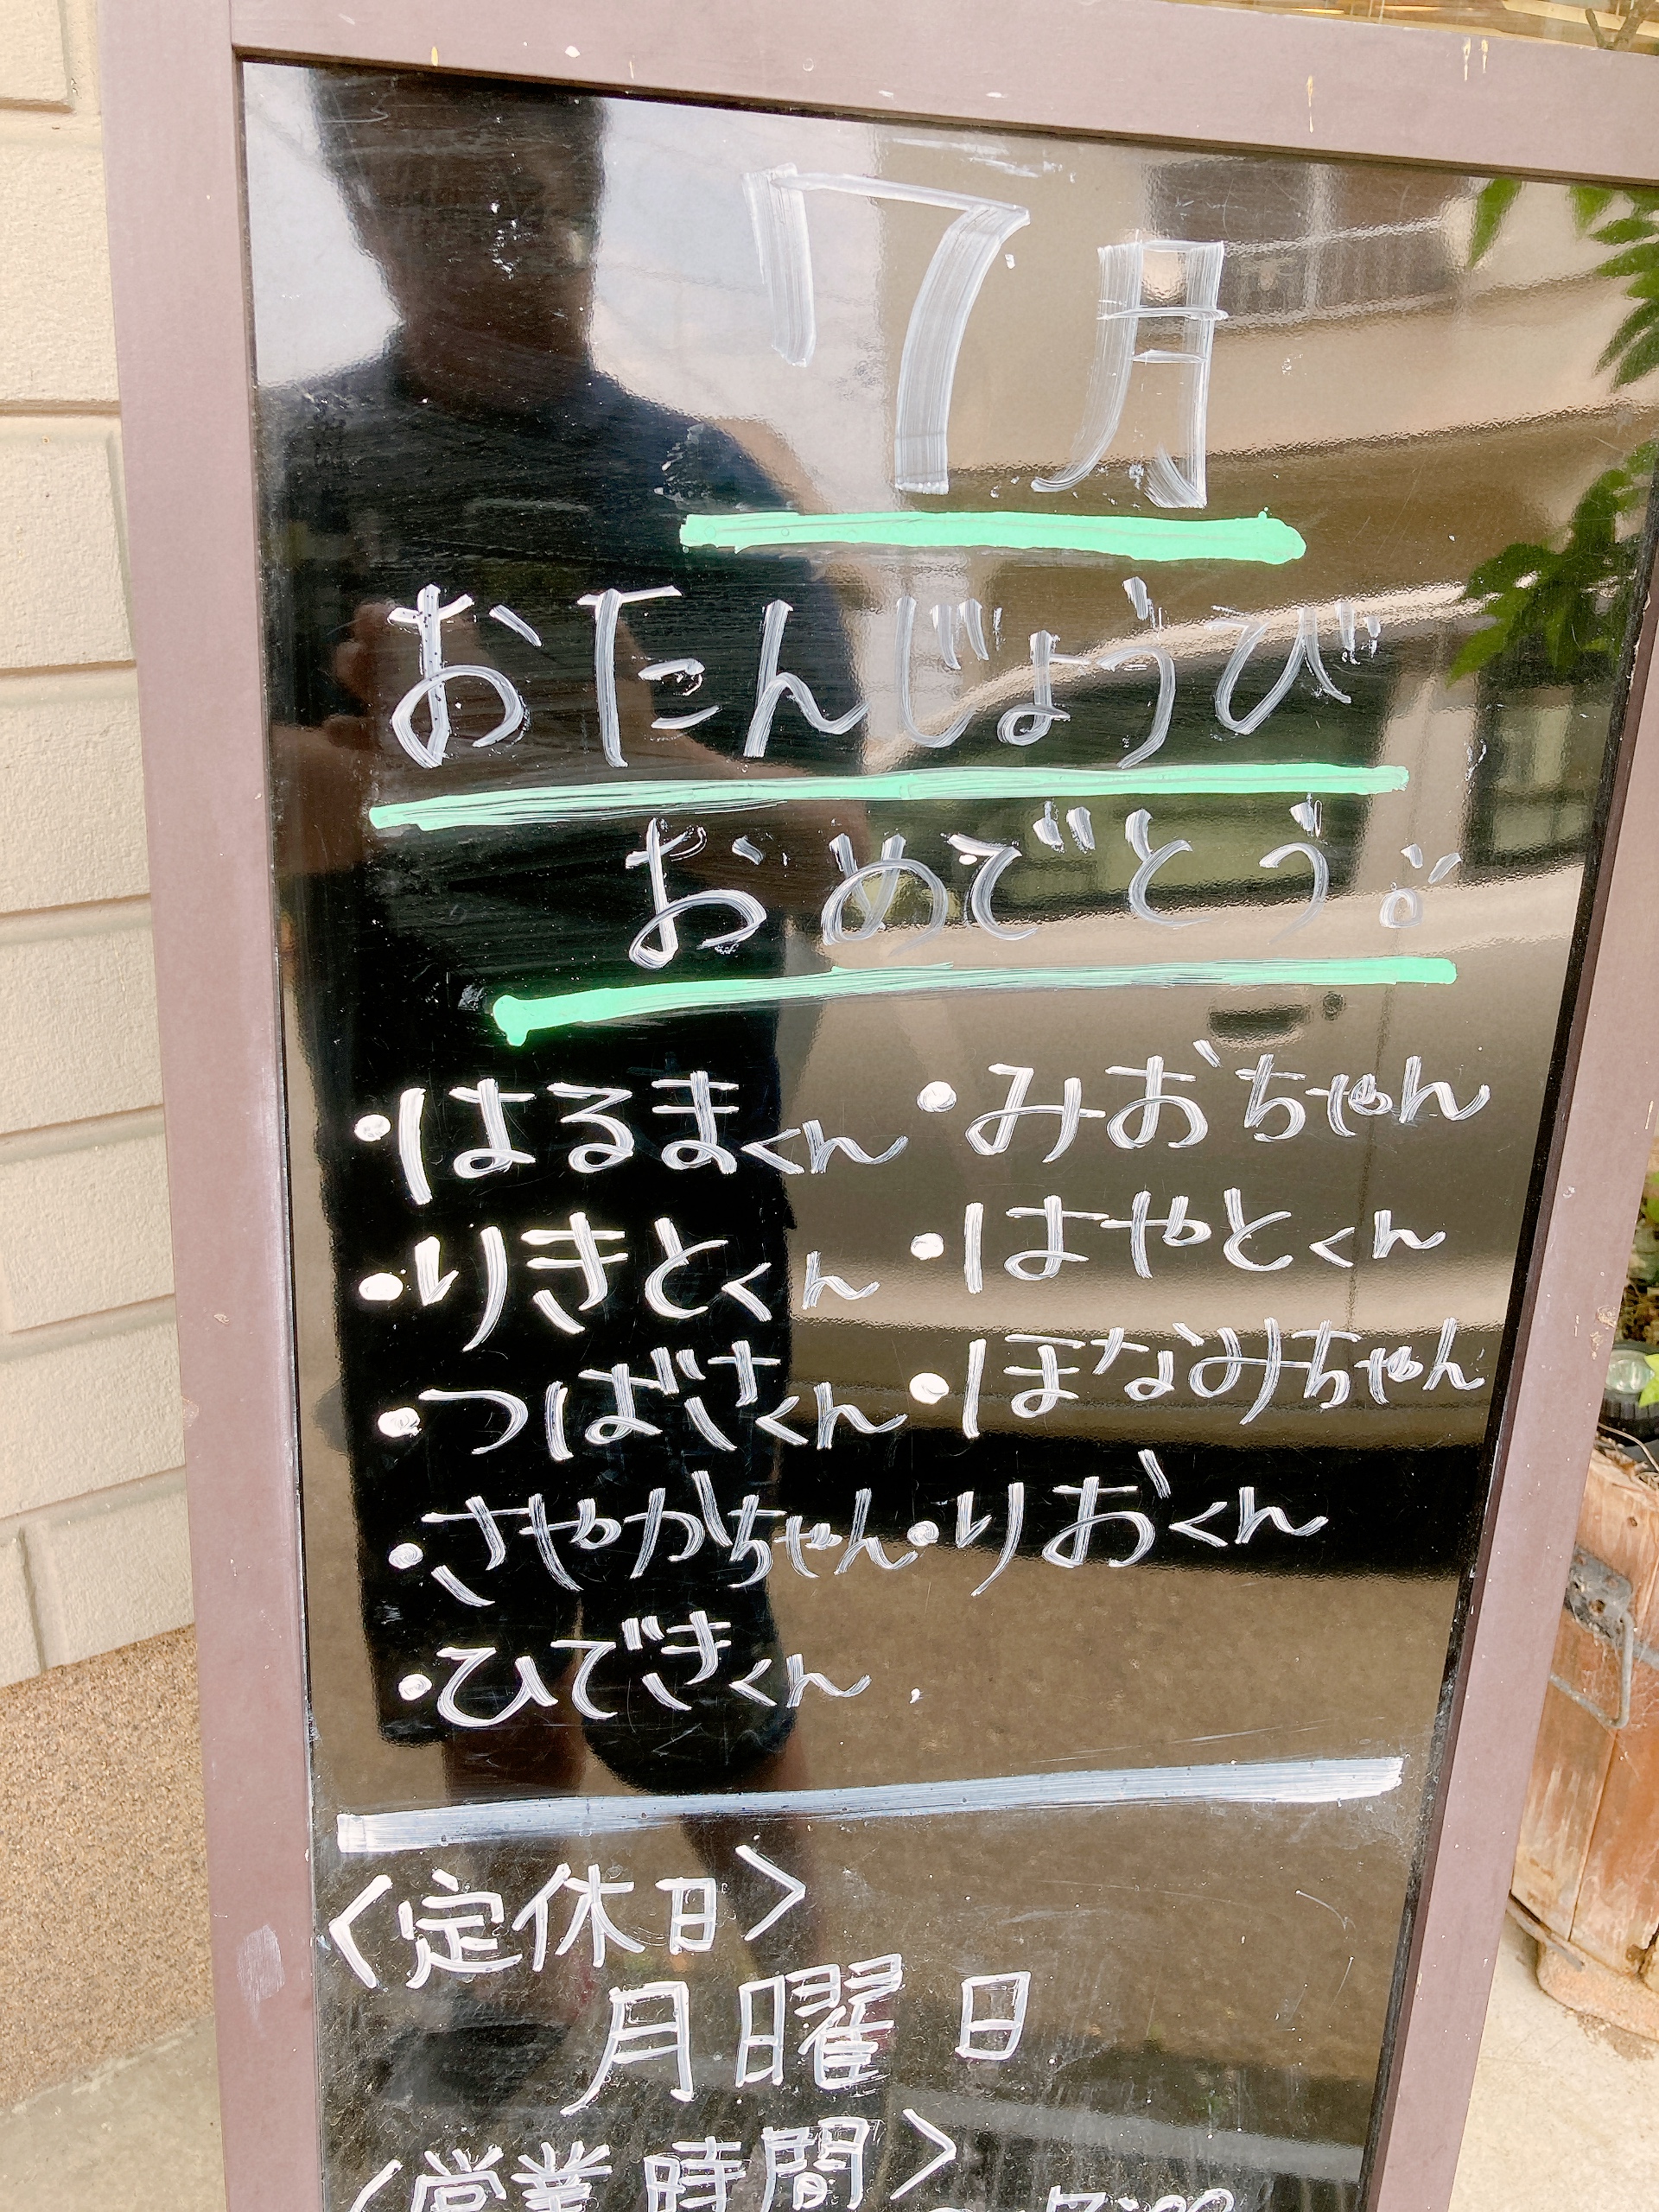 7月
おたんじょうび
おめでとう!!
・はるまくん ・みおちゃん
・りきとくん ・はやとくん
・つばさくん ・ほなみちゃん
・さやかちゃん ・りおくん
・ひできくん
〈定休日〉
月曜日
〈営業時間〉